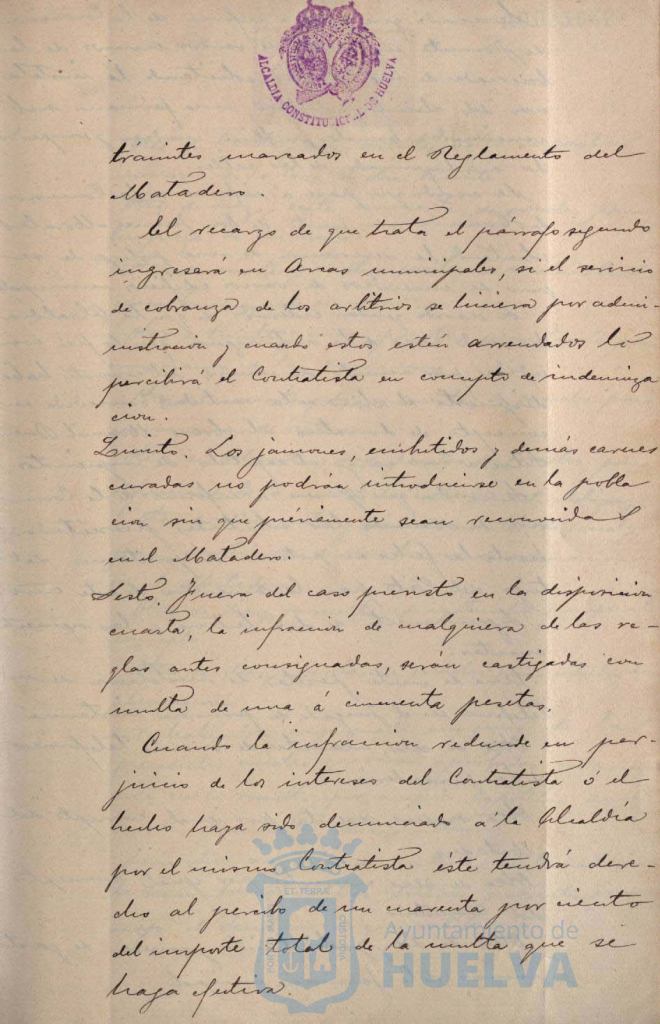 ALCALDIA CONSTITUCIONAL DE HUELVA
trámites marcados en el Reglamento del
Matadero.
El recargo de que trata el párrafo segundo
ingresará en Arcas municipales, si el servicio
de cobranza de los arbitrios se hiciera por admi-
nistracion y cuando estos estén arrendados lo
percibirá el Contratista en concepto de indemniza
cion.
Quinto. Los jamones, embutidos y demás carnes
curadas no podrán introducirse en la pobla
cion sin que préviamente sean reconocidas
en el Matadero.
Sesto. Fuera del caso previsto en la disposicion
cuarta, la infraccion de cualquiera de las re-
glas antes consignadas, serán castigadas con
multa de una á cincuenta pesetas.
Cuando la infraccion redunde en per-
juicio de los intereses del Contratista ó el
hecho haya sido denunciado á la Alcaldía
por el mismo Contratista éste tendrá dere-
cho al percibo de un cuarenta por ciento
del importe total de la multa que se
haga efectiva.
Ayuntamiento de
HUELVA